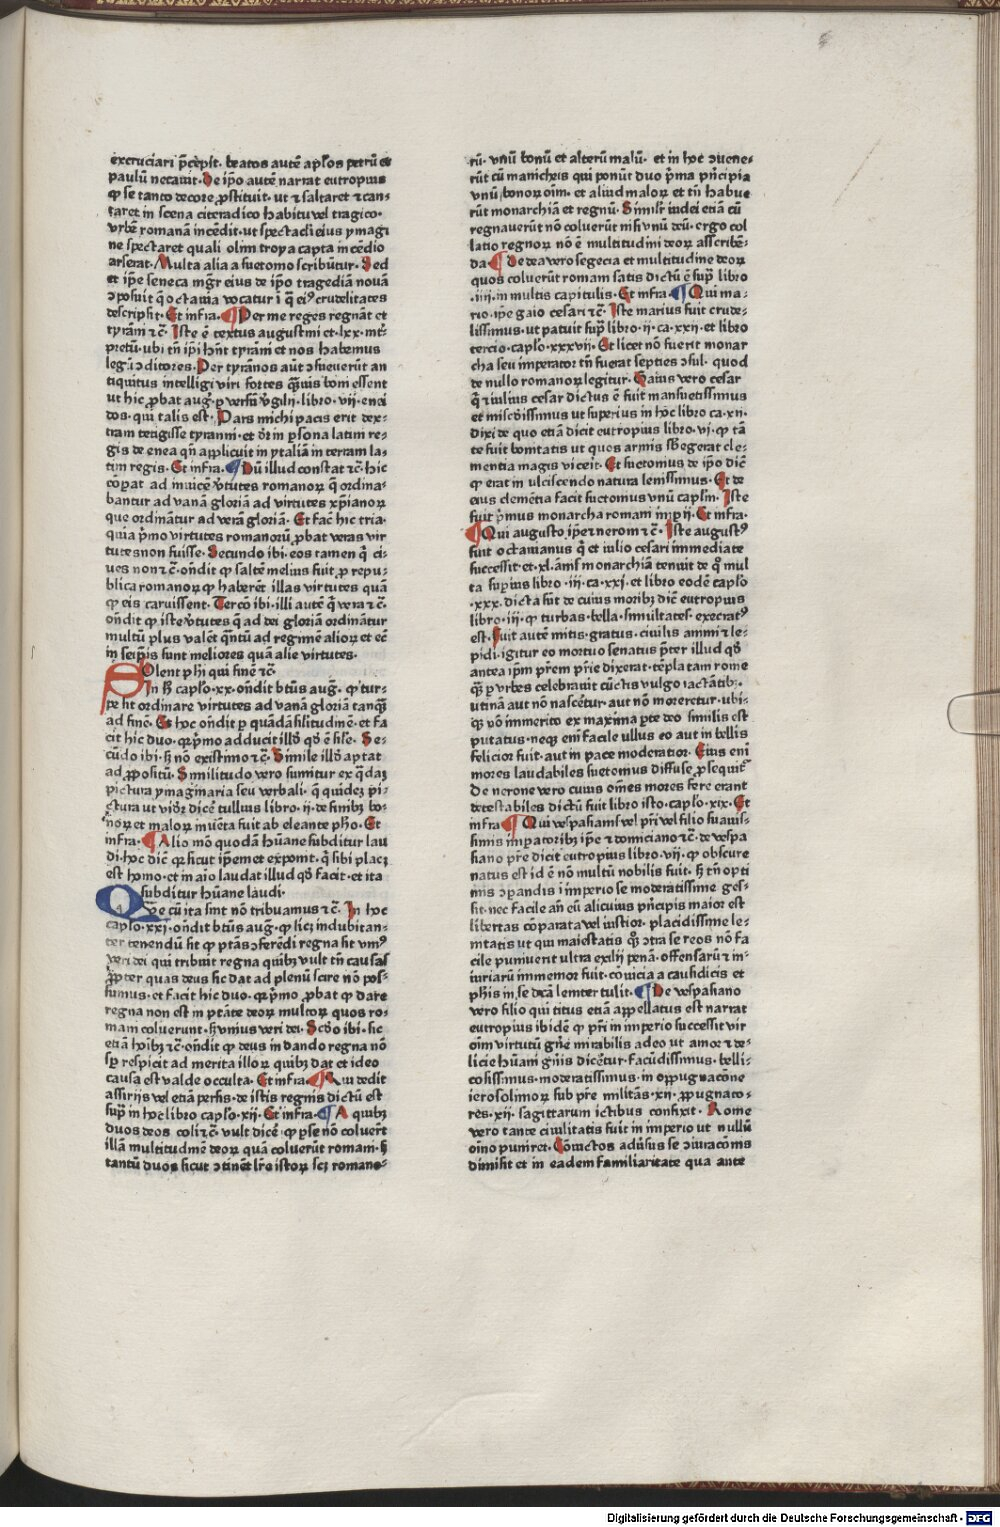 excruciari p̄cepit. beatos autē apl'os petrū et
paulū necauit. De ip̄o autē narrat eutropius
ꝙ se tanto decore ꝓstituit. ut ⁊ saltaret ⁊ can-
taret in scena citeradico habitu vel tragico.
vrbē romanā incēdit. ut spectacl'i eius ymagi
nē spectaret quali olim troya capta incēdio
arserat. Multa alia a suetomo scribūtur. Sed
et ip̄e seneca mgr̄ eius de ip̄o tragediā nouā
ↄposuit q̄ octauia vocatur ī q̄ ei⁹ crudelitates
descripsit. Et infra. ¶ Per me reges regnāt et
tyrāni ⁊c̄. Iste ē textus augustini et .lxx. int̄
pretū. ubi tn̄ ip̄i hn̄t tyrāni et nos habemus
legū ↄditores. Per tyranos aūt ↄsueuerūt an
tiquitus intelligi viri fortes q̄uis boni essent
ut hic ꝓbat auḡ. ꝑ versū v̓gilij. libro .vij. enei
dos. qui talis est. Pars michi pacis erit dex-
tram tetigisse tyranni. et dr̄ in ꝑsona latini re-
gis de enea qn̄ applicuit in ytaliā in terram la-
tini regis. Et infra. ¶ Dū illud constat ⁊c̄. hic
cōꝑat ad inuicē v̓tutes romanoꝝ q̄ ordina-
bantur ad vanā gloriā ad virtutes xp̄ianoꝝ
que ordinātur ad verā gloriā. Et fac̄ hic tria.
quia p̓mo virtutes romanorū ꝓbat veras vir
tutes non fuisse. Secundo ibi. eos tamen q̄ ci-
ues non ⁊c̄. on̄dit ꝙ saltē melius fuit ꝓ repu-
blica romanoꝝ ꝙ haberēt illas virtutes quā
ꝙ eis caruissent. Tercō ibi. illi autē q̄ vera ⁊c̄.
on̄dit ꝙ iste v̓tutes q̄ ad dei gloriā ordinātur
multū plus valēt q̄ntū ad regimē alioꝝ et eē
in seip̄is sunt meliores quā alie virtutes.
Solent phi qui finē ⁊c̄.
In H̄ capl'o .xx. on̄dit btūs auḡ. ꝙ tur-
pe sit ordinare virtutes ad vanā gloriā tanqꝫ
ad finē. Et hoc on̄dit ꝑ quādā silitudinē. et fa
cit hic duo. qr p̓mo adducit illd̄ qd̄ ē sil'e. Se-
cūdo ibi. s̄ nō existimo ⁊c̄. Simile illd̄ aptat
ad ꝓpositū. Similitudo vero sumitur ex q̄daꝫ
pictura ymaginaria seu verbali. q̄ quidēꝫ pi-
ctura ut vid̄r dicē tullius libro .ij. de finibꝫ bo-
noꝝ et maloꝝ inuēta fuit ab eleante pho. Et
infra. ¶ Alio mō quodā hūane subditur lau
di. hoc dic̄ qr sicut ip̄emet exponit. q̄ sibi placꝫ
est homo. et in aīo laudat illud qd̄ facit. et ita
subditur hūane laudi.
Que cū ita sint nō tribuamus ⁊c̄. In hoc
capl'o .xxj. on̄dit btūs auḡ. ꝙ licꝫ indubitan-
ter tenendū sit ꝙ ptās ↄferēdi regna sit vni⁹
veri dei qui tribuit regna quibꝫ vult tn̄ causas
ꝓpter quas deus sic dat ad plenū scire nō pos-
sumus. et facit hic duo. qr p̓mo ꝓbat ꝙ dare
regna non est in ptāte deoꝝ multoꝝ quos ro-
mani coluerunt. s̄ vnius veri dei. Scdo ibi. sic
etiā hoībꝫ ⁊c̄. on̄dit ꝙ deus in dando regna nō
sꝑ respicit ad merita illoꝝ quibꝫ dat et ideo
causa est valde occulta. Et infra. ¶ Qui dedit
assirijs vel etiā persis. de istis regnis dictū est
sup̄ in hoc libro capl'o .xij. Et infra. ¶ A quibꝫ
duos deos coli ⁊c̄. vult dicē. ꝙ ꝑse nō coluert
illā multitudinē deoꝝ quā coluerūt romani. s̄
tantū duos sicut ↄtinēt lr̄e istoꝝ scꝫ romano-
rū. vnū bonū et alterū malū. et in hoc ↄuene-
rūt cū manicheis qui ponūt duo p̓ma p̓ncipia
vnū bonoꝝ oīm. et aliud maloꝝ et tn̄ habue
rūt monarchiā et regnū. Similr̄ iudei etiā cū
regnauerūt nō coluerūt nisi vnū deū. ergo col
latio regnoꝝ nō ē multitudini deoꝝ asscribē-
da. ¶ De dea vero segecia et multitudine deoꝝ
quos coluerūt romani satis dictū ē sup̄ libro
.iiij. in multis capitulis. Et infra. ¶ Qui ma-
rio. ip̄e gaio cesari ⁊c̄. Iste marius fuit crude-
lissimus. ut patuit sup̄ libro .ij. ca .xxij. et libro
tercio. capl'o .xxxvij. Et licet nō fuerit monar
cha seu imperator tn̄ fuerat septies ↄsul. quod
de nullo romanoꝝ legitur. Gaius vero cesar
q̄ ⁊ iulius cesar dictus ē fuit mansuetissimus
et mis̄cdissimus ut superius in hoc libro ca .xij.
dixi de quo etiā dicit eutropius libro .vj. ꝙ tā
te fuit bonitatis ut quos armis sb̄egerat cle-
mentia magis vicerit. Et suetomus de ip̄o dic̄
ꝙ erat in ulciscendo natura lenissimus. Et de
eius clemētia facit suetomus vnū capl'm. Iste
fuit p̓mus monarcha romani impij. Et infra.
¶ Qui augusto ip̄e ⁊ neroni ⁊c̄. Iste august⁹
fuit octauianus q̄ et iulio cesari immediate
successit. et .xl. annis monarchiā tenuit de q̄ mul
ta supius libro .iij. ca .xxj. et libro eodē capl'o
.xxx. dicta sūt de cuius moribꝫ dic̄ eutropius
libro .iij. ꝙ turbas. bella. simultates. execrat⁹
est. Fuit autē mitis. gratus. ciuilis animi ⁊ le-
pidi. igitur eo mortuo senatus pter illud qd̄
antea ip̄m pr̄em pr̄ie dixerat. tēpla tam rome
qꝫ ꝑ vrbes celebrauit cūctis vulgo iactātibꝫ.
utinā aut nō nascētur. aut nō moreretur. ubi-
qꝫ. vō immerito ex maxima pte deo similis est
putatus. neqꝫ enī facile ullus eo aut in bellis
felicior fuit. aut in pace moderatior. Eius enī
mores laudabiles suetomus diffuse ꝓsequit̄
De nerone vero cuius om̄es mores fere erant
detestabiles dictū fuit libro isto. capl'o .xix. Et
infra ¶ Qui vespasianis vel pr̄i vel filio suauis-
simis impatoribꝫ ip̄e ⁊ domiciano ⁊c̄. de vespa
siano pr̄e dicit eutropius libro .vij. ꝙ obscure
natus est id ē nō multū nobilis fuit. s̄ tn̄ opti
mis ↄpandis ī imperio se moderatissime ges-
sit. nec facile an̄ eū alicuius p̓ncipis maior est
libertas cōparata vel iustior. placidissime le-
nitatis ut qui maiestatis qꝫ ↄtra se reos nō fa
cile puniuent ultra exilij penā. offensarū ⁊ in-
iuriarū immemor fuit. cōuicia a causidicis et
phis in se dicā leniter tulit. ¶ De vespasiano
vero filio qui titus etiā appellatus est narrat
eutropius ibidē ꝙ pr̄i in imperio successit vir
oīm virtutū gn̄e mirabilis adeo ut amor ⁊ de-
licie hūani gn̄is dicētur. facūdissimus. belli-
cosissimus. moderatissimus. in oppugnacōne
ierosolimoꝝ sub pre militās .xij. ꝓpugnato-
res .xij. sagittarum ictibus confixit. Rome
vero tante ciuilitatis fuit in imperio ut nullū
oīno puniret. Cōuictos adūsus se ↄiuracōnis
dimisit et in eadem familiaritate qua ante
Digitalisierung gefördert durch die Deutsche Forschungsgemeinschaft - DFG